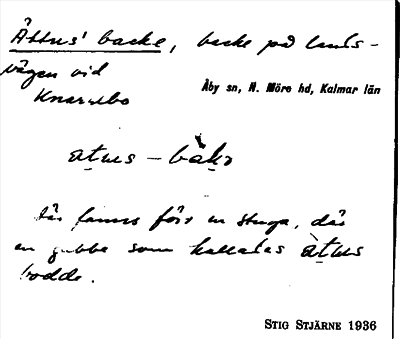 Ättus' backe, backe på lands-
vägen vid
Knarrebo
Åby sn, N. Möre hd, Kalmar län
atus – bakə
där fanns förr en stuga, där
en gubbe som kallades atus
bodde.
STIG STJÄRNE 1936